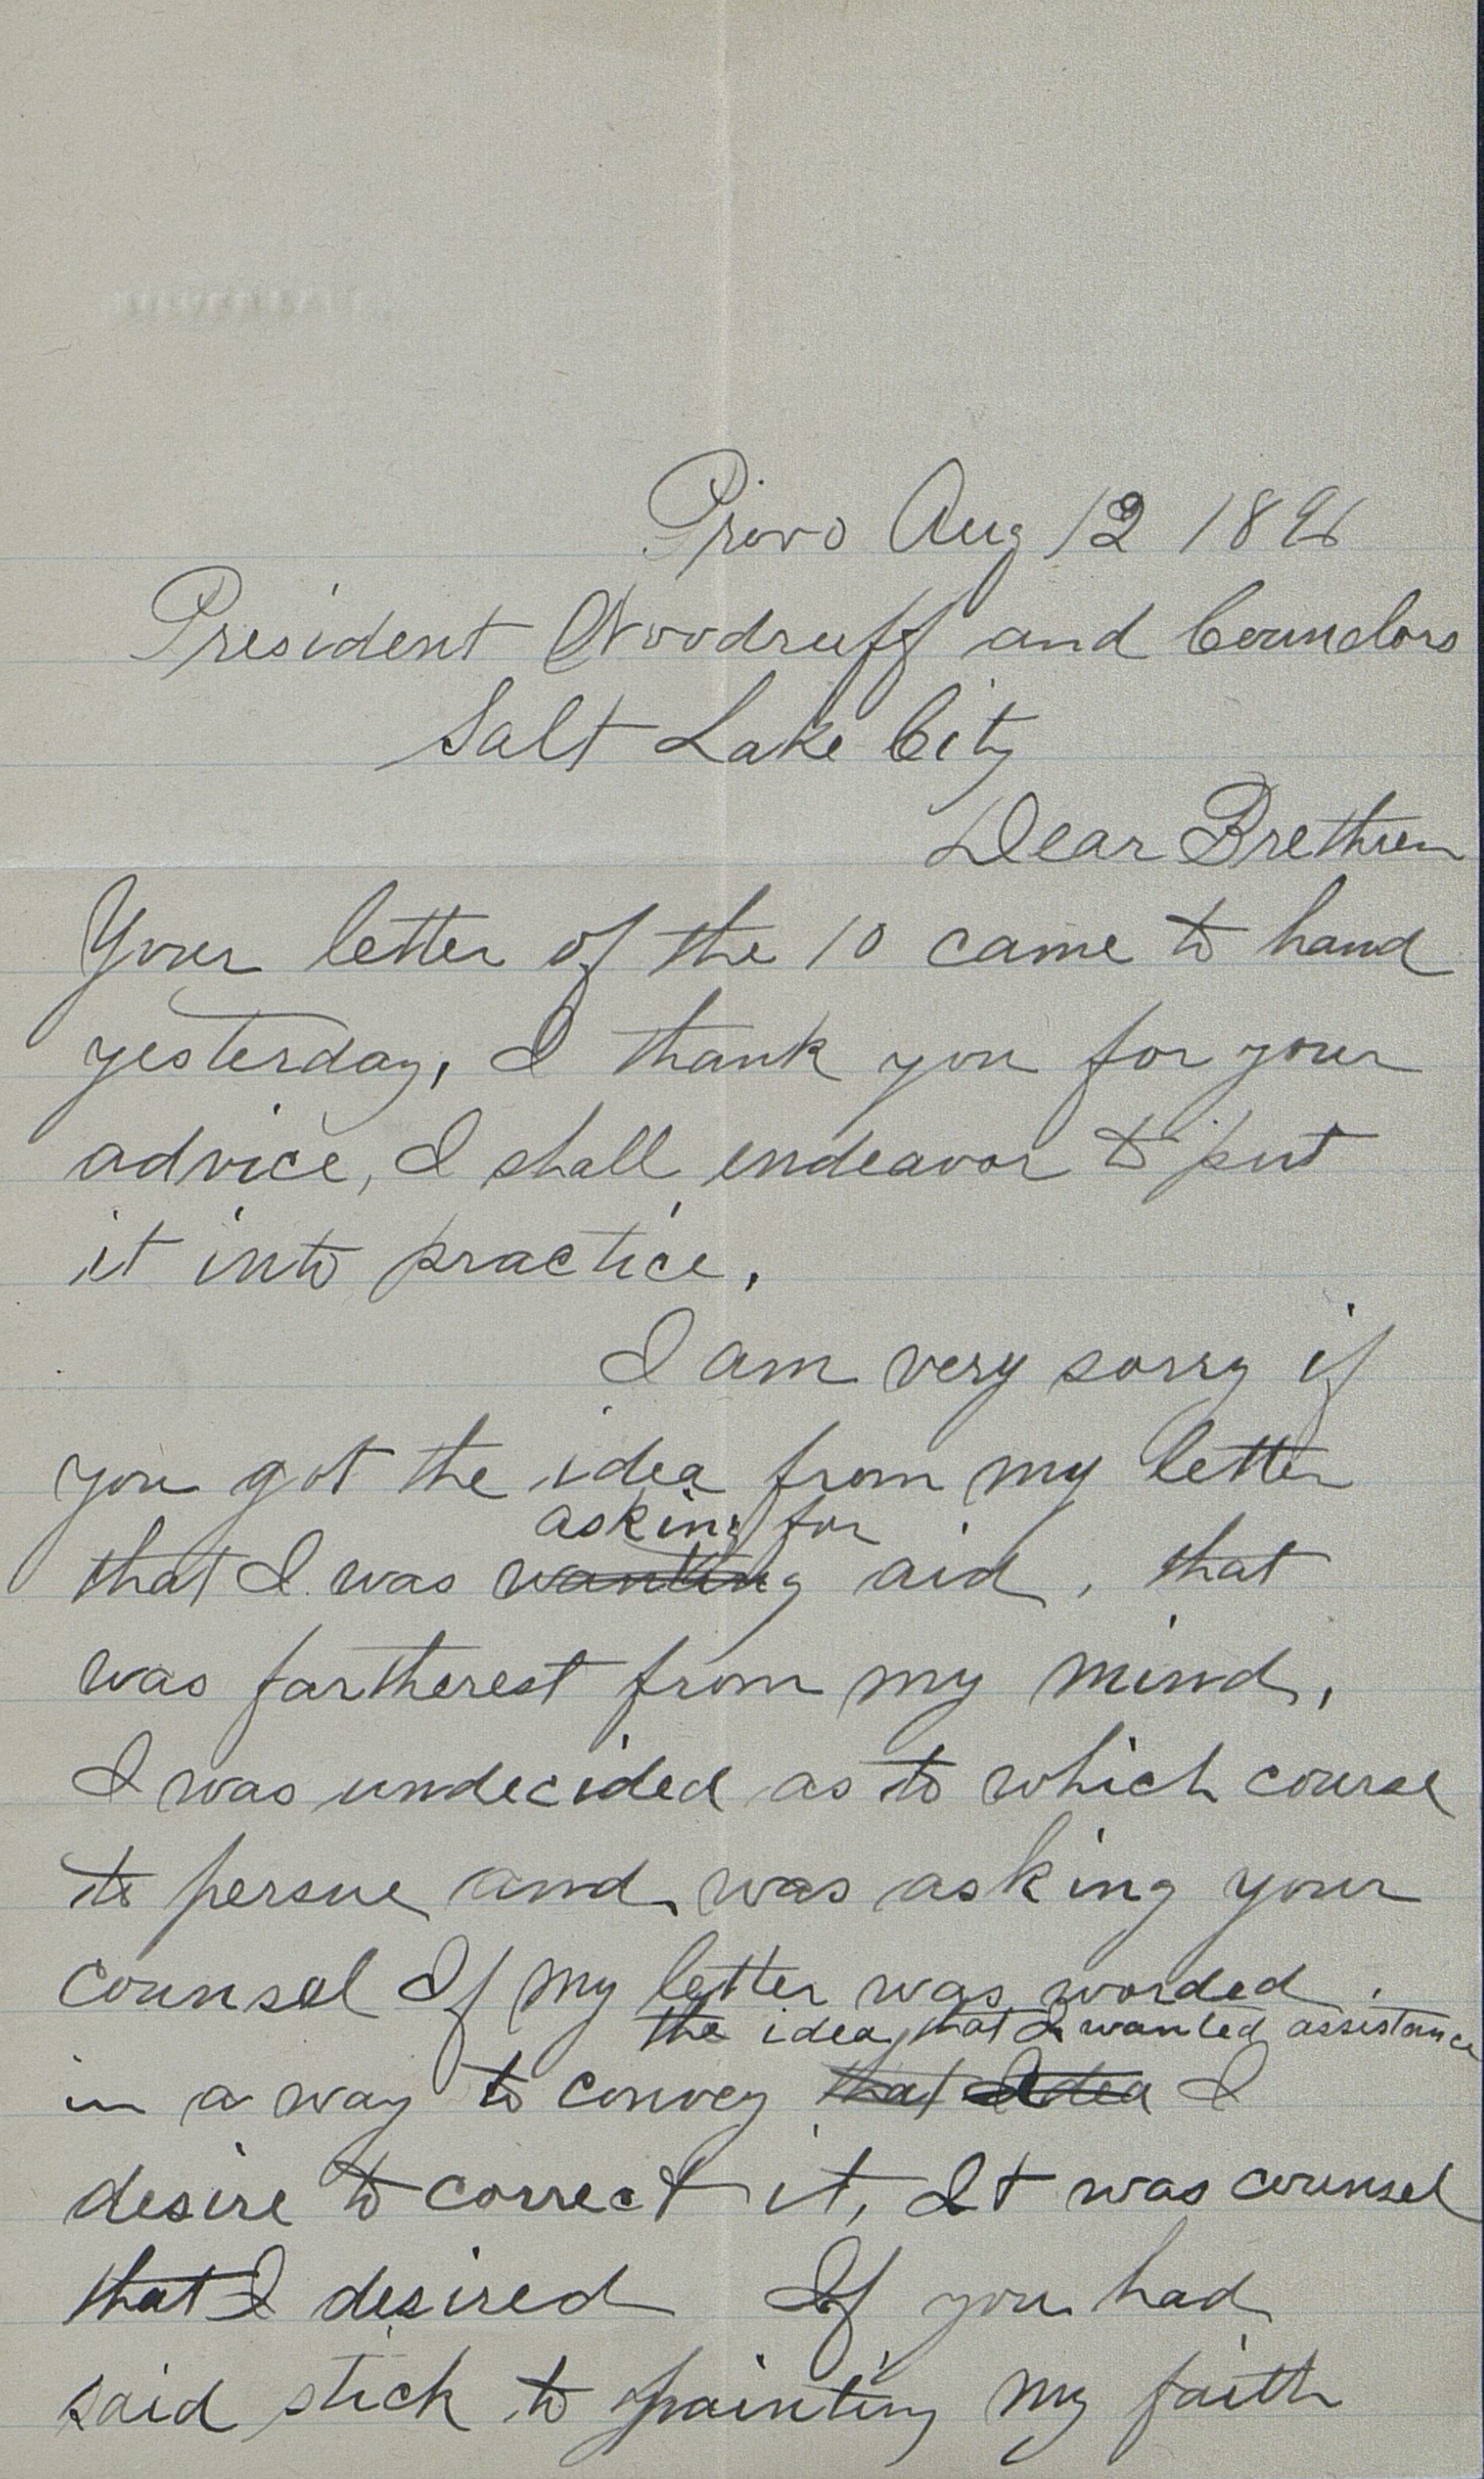 Provo Aug 12 1896
President Woodruff and Counclors
Salt Lake City
Dear Brethren
Your letter of the 10 came to hand
yesterday, I thank you for your
advice, I shall endeavor to put
it into practice.
I am very sorry if
you got the idea from my letter
asking for
that I was wanting aid, that
was fartherest from my mind,
I was undecided as to which course
to persue and was asking your
counsel If my letter was worded
the idea that I wanted assistance
in a way to convey that Idea I
desire to correct it, It was counsel
that I desired If you had
said stick to painting my faith